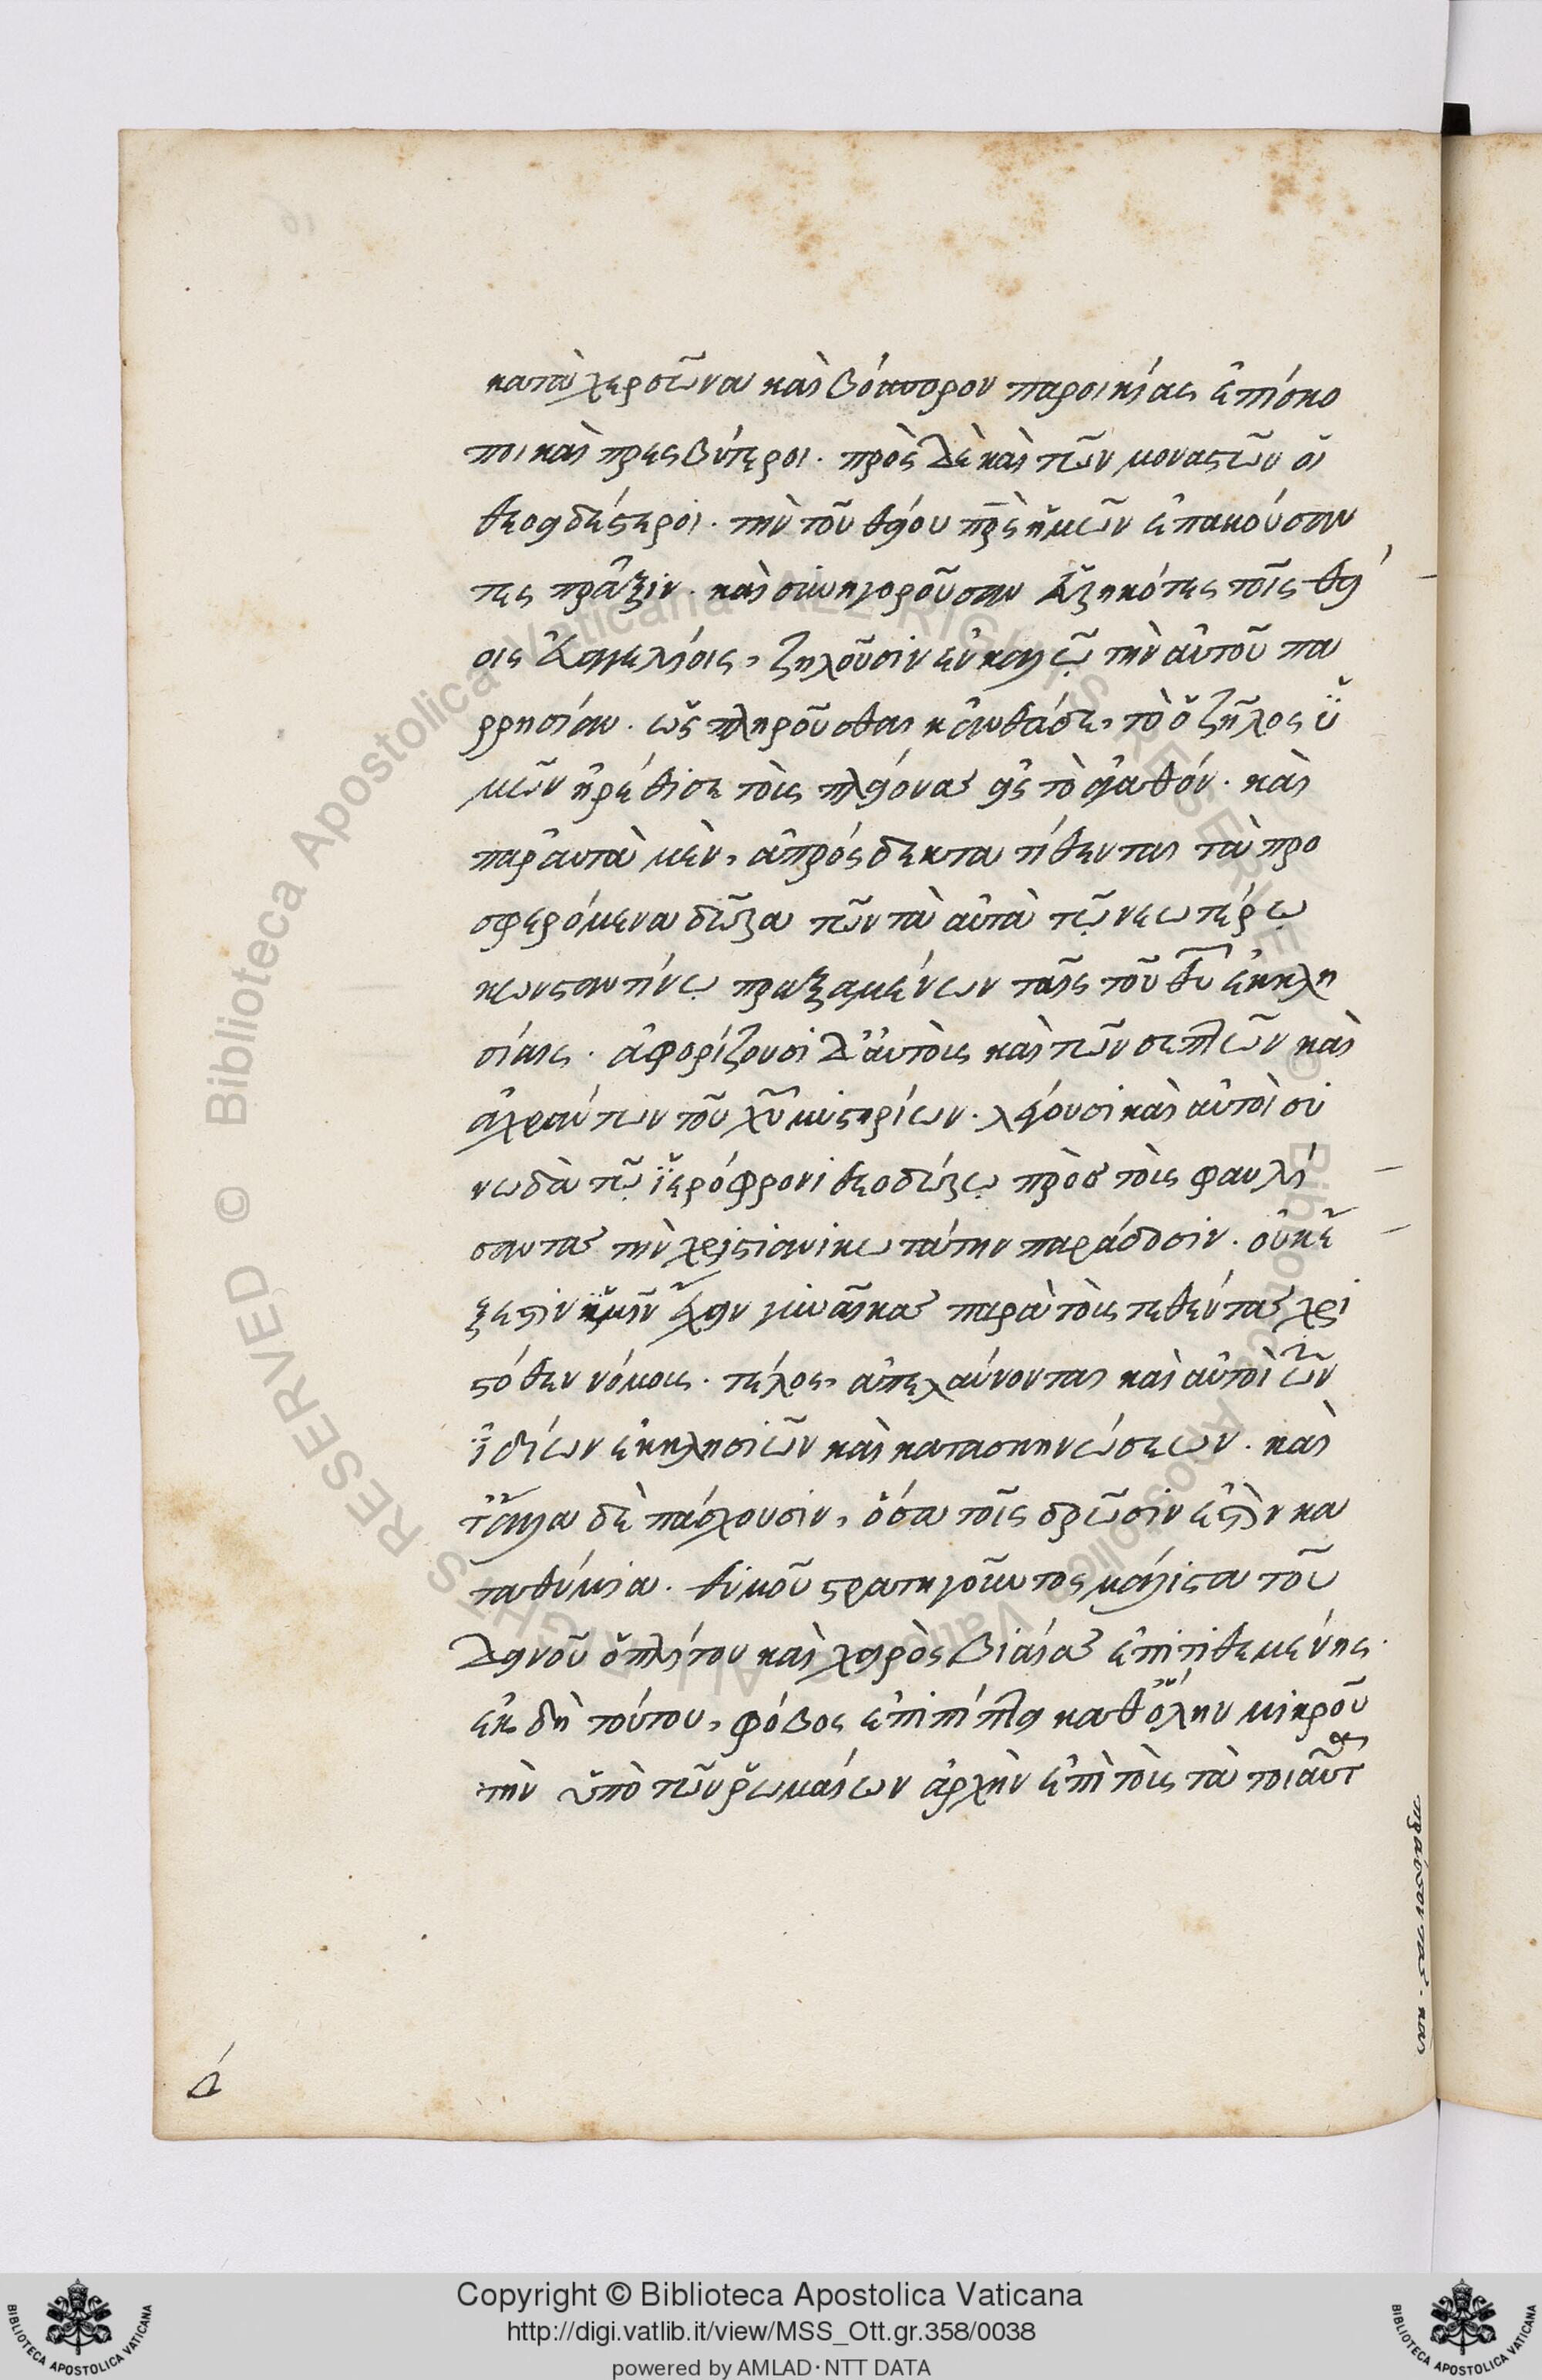 κατὰ χερσῶνα καὶ βόσπορον παροικίας ἐπίσκο
ποι καὶ πρεσβύτεροι. πρὸς δὲ καὶ τῶν μοναστῶν οἱ
θεοειδέστεροι. τὴν τοῦ θείου πρς ἡμῶν ἐπακούσαν
τες πράξιν. καὶ συνηγοροῦσαν εὑρηκότες τοῖς θεί
οις εὐαγγελίοις, ζηλοῦσιν ἐν καλῷ τὴν αὐτοῦ πα
ρρησίαν. ὡς πληροῦσθαι κἀνθάδε, τὸ ὁ ζῆλος ὑ
μῶν ἠρέθισε τοὺς πλείονας εἰς τὸ ἀγαθόν. καὶ
παρ᾽ αυτὰ μὲν, ἀπρόσδεκτα τίθενται τὰ προ
σφερόμενα δῶρα τῶν τὰ αὐτὰ τῷ νεωτέρῳ
κωνσταντίνῳ πραξαμένων ταῖς τοῦ θυ ἐκκλη
σίαις. ἀφορίζουσι δ᾽ αὐτοὺς καὶ τῶν σεπτῶν καὶ
ἀχράντων τοῦ χυ μυστηρίων. λέγουσι καὶ αὐτοὶ συ
νωδὰ τῷ ἱερόφρονι θεοδώρῳ πρὸς τοὺς φαυλί
σαντας τὴν χριστιανικωτάτην παράδοσιν. οὐκ ἔ
ξεστιν ὑμῖν ἔχειν γυναῖκας παρὰ τοὺς τεθέντας χρι
στόθεν νόμους. τέλος, ἀπελαύνονται καὶ αὐτοὶ τῶν
ἰδίων ἐκκλησιῶν καὶ κατασκηνώσεων. καὶ
τἄλλα δὲ πάσχουσιν, ὅσα τοῖς δρῶσιν ἐστὶν κα
ταθύμια. θυμοῦ στρατηγοῦντος μάλιστα τοῦ
δεινοῦ ὁπλίτου καὶ χειρὸς βιαίας ἐπιτιθεμένης.
ἐκ δὴ τούτου, φόβος ἐπιπίπτει καθ᾽ ὅλην μικροῦ
τὴν ὑπὸ τῶν ῥωμαίων ἀρχὴν ἐπὶ τοὺς τὰ τοιαῦτα
πράσσοντας. καὶ
Copyright © Biblioteca Apostolica Vaticana
http://digi.vatlib.it/view/MSS_Ott.gr.358/0038
powered by AMLAD·NTT DATA